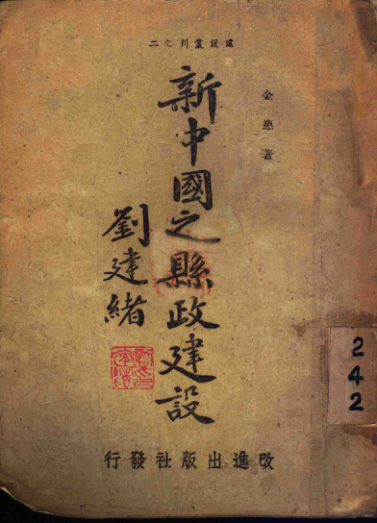 二之列叢設建
金惠著
新中國之縣政建設
劉建緒
行發社版出進改
242